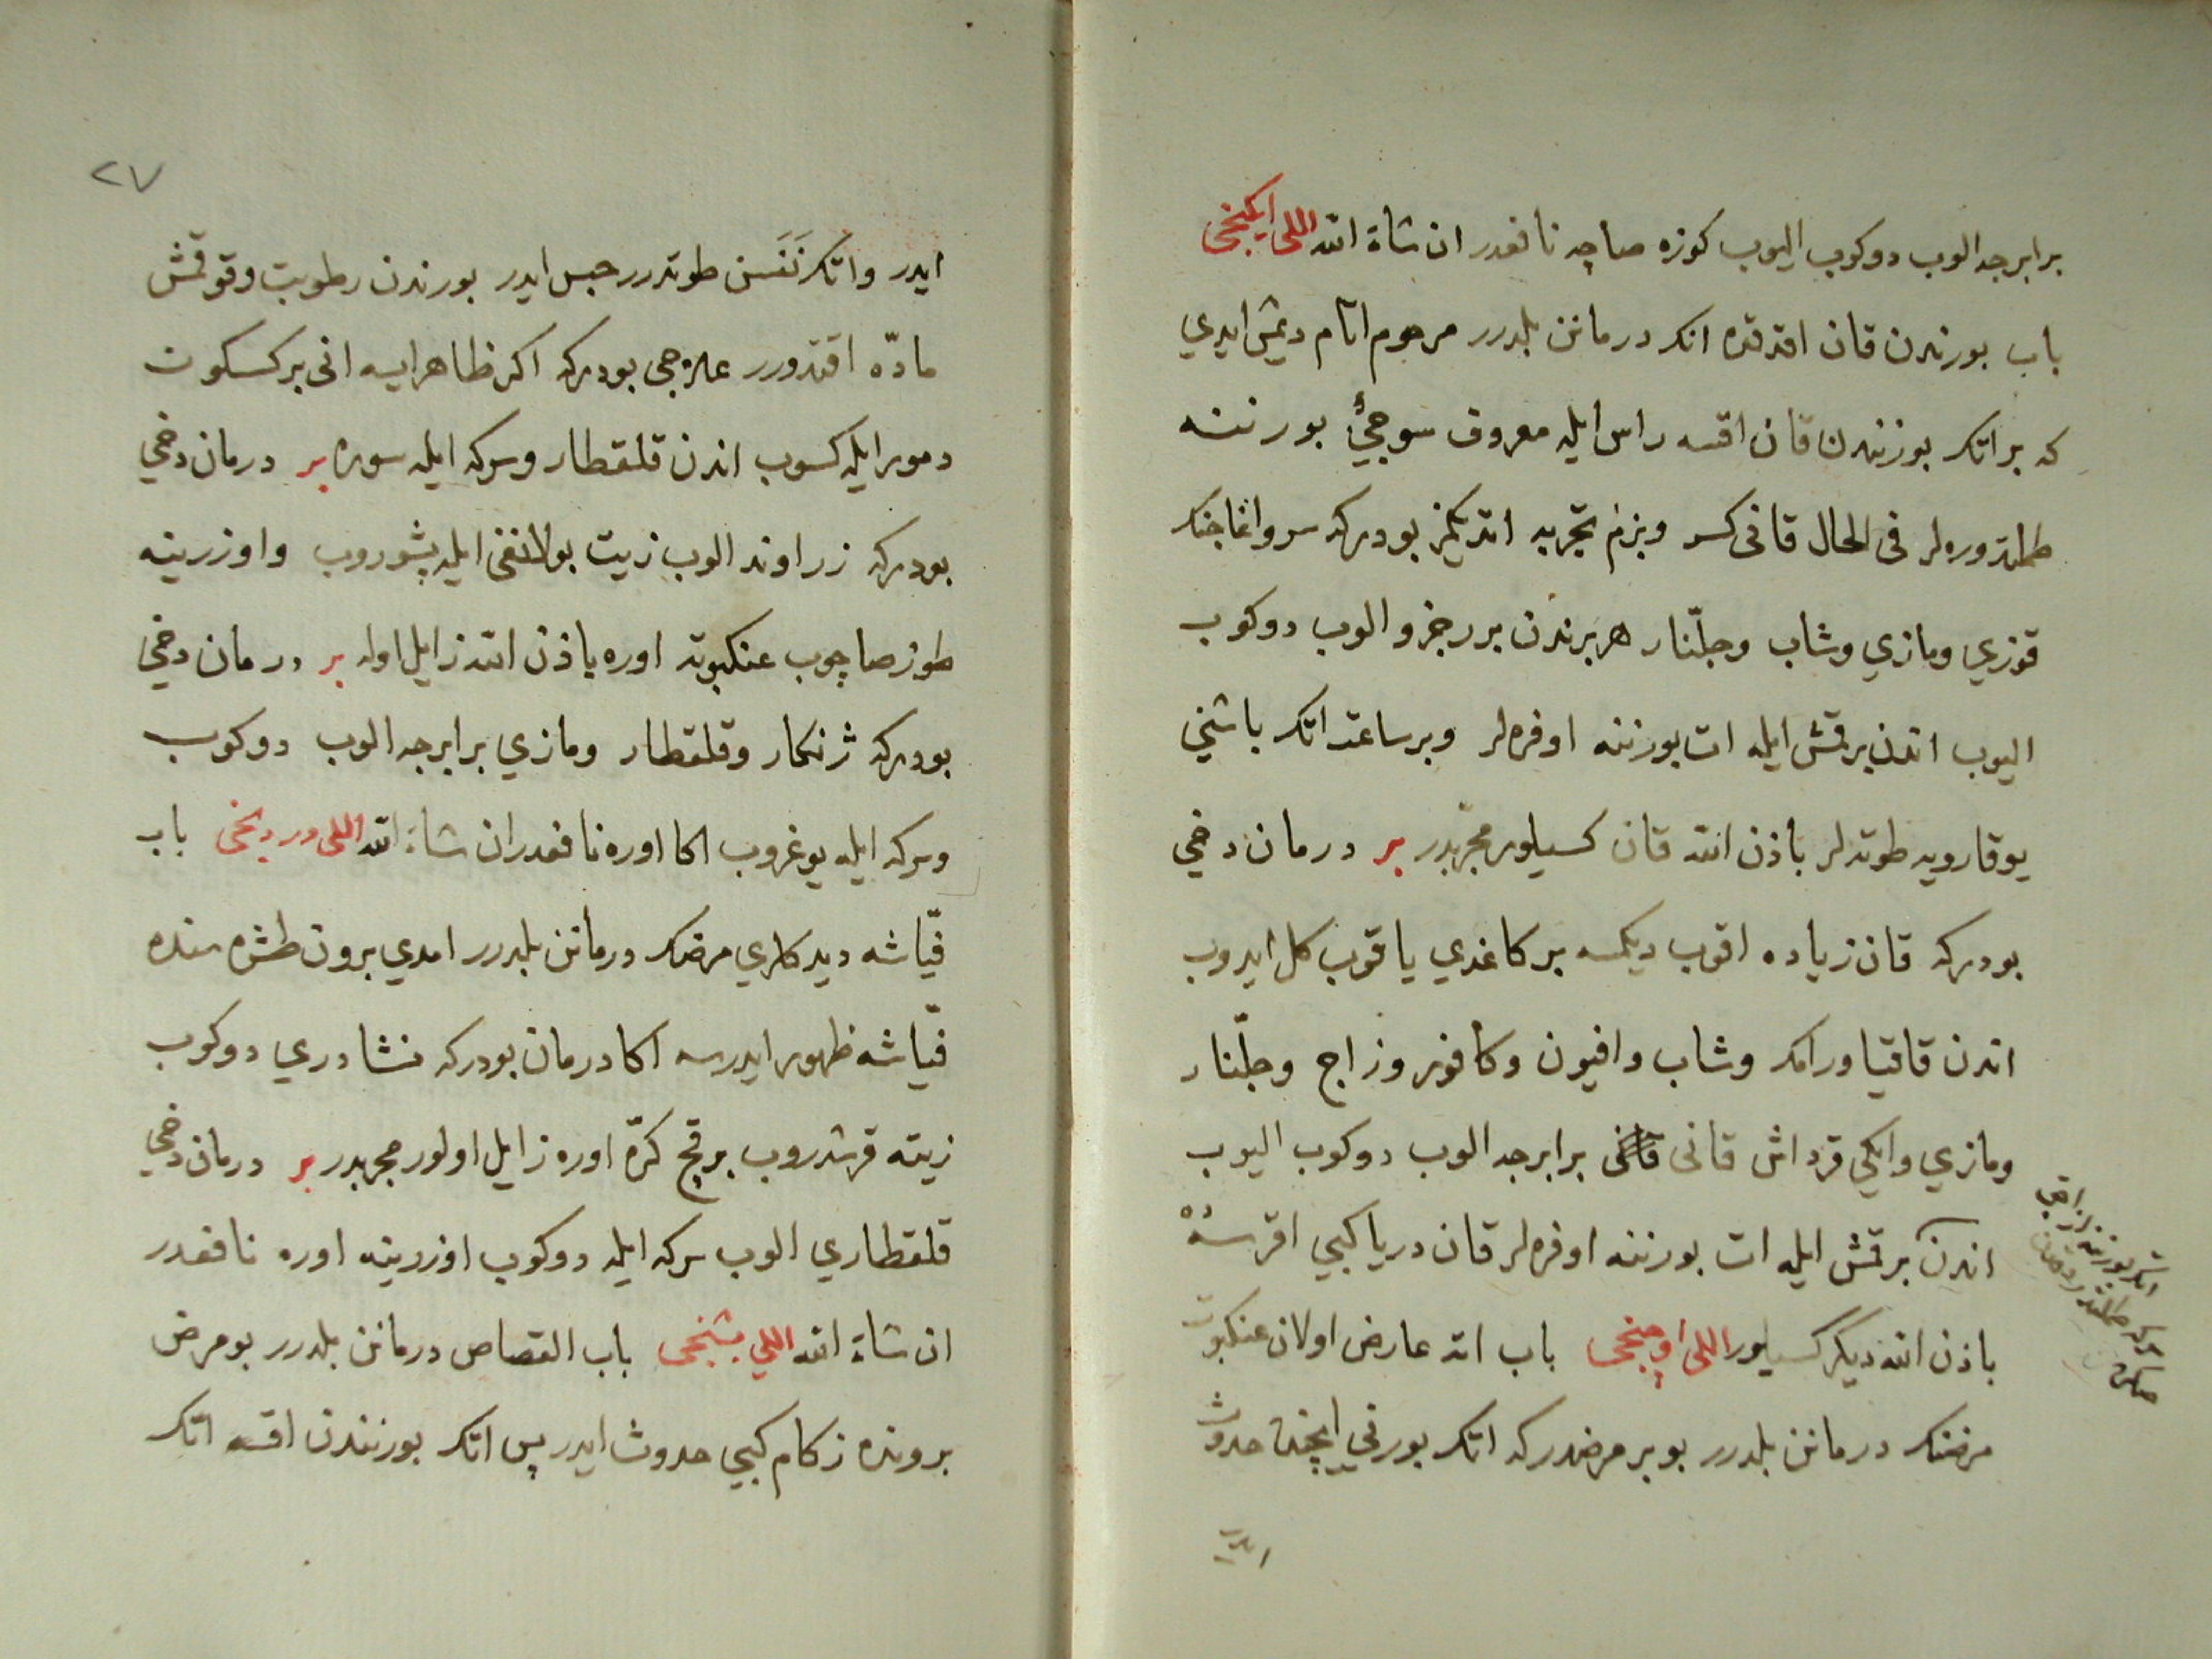 برابرجه الوب دوكوب اليوب كوزه صاچه نافعدر ان شاء الله اللى ايكنجى
باب بورندن قان اقدقده انك درمانن بلدرر مرحوم اتام ديمش ايدي
كه بر اتك بورنندن قان اقسه راس ايله معروف سوجيئ بورننه
طملتدوره لر فى الحال قانى كسر وبزم تجربه اتديكمز بودركه سرو اغاجنك
قوزي ومازي وشاب وجلّنار هر برندن بر جزو الوب دوكوب
اليوب اندن برقمش ايله ات بورننه اوفره لر وبر ساعت اتك باشنى
يوقارويه طوته لر باذن الله قان كسيلور مجربدر بر درمان دخى
بودركه قان زياده اقوب ديكمسه بر كاغدي ياقوب كل ايدوب
اندن قاقيا ورامك وشاب وافيون وكافور وزاج وجلّنار
ومازي وايكي قرداش قانى برابرجه الوب دوكوب اليوب
اندن برقمش ايله ات بورننه اوفره لر قان دريا كبي اقرسه
باذن الله ديكر كسيلور اللى اوچنجى باب اته عارض اولان عنكبوت
مرضنك درمانن بلدرر بو بر مرضدركه اتك بورني ايچنده حدوث
ايدر
٢٧
ايدر واتك نَفَسن طوتدرر حبس ايدر بورندن رطوبت وقوقمش
مادّه اقتدورر علاجى بودركه اكر ظاهر ايسه انى بر كسكون
دمور ايله كسوب اندن قلقطار وسركه ايله سوره بر درمان دخى
بودركه زراوند الوب زيت بولانغى ايله پشوروب واوزرينه
طوز صاچوب عنكبوته اوره باذن الله زايل اوله بر درمان دخى
بودركه ژنكار وقلقطار ومازي برابرجه الوب دوكوب
وسركه ايله يوغروب اكا اوره نافعدر ان شاء الله اللى دردنجى باب
قيّاشه ديدكلري مرضك درمانن بلدرر امدي برون طشره سنده
قيّاشه ظهور ايدرسه اكا درمان بودركه نشادري دوكوب
زيته قرشدروب برقچ كرّه اوره زايل اولور مجربدر بر درمان دخى
قلقطاري الوب سركه ايله دوكوب اوزرينه اوره نافعدر
ان شاء الله اللي بشنجى باب القصاص درمانن بلدرر بو مرض
برونده زكام كبي حدوث ايدر پس اتك بورنندن اقسه اتك